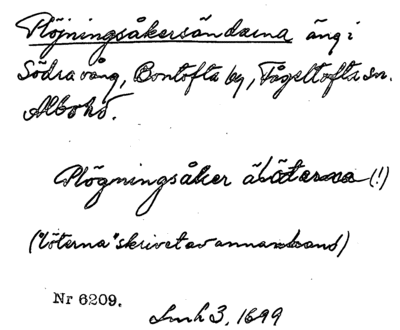 Plöjningsåkersändarna äng i
Södra vång, Bontofta by, Fågeltofta sn.
Albo hd.
Plögningsåker äböterna (!)
("böterna" skrivet av annan hand)
Nr 6209.
Lmh 3. 1699